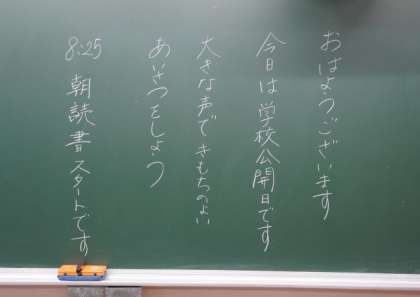 おはようございます
今日は学校公開日です
大きな声できもちのよい
あいさつをしよう
8:25 朝読書スタートです